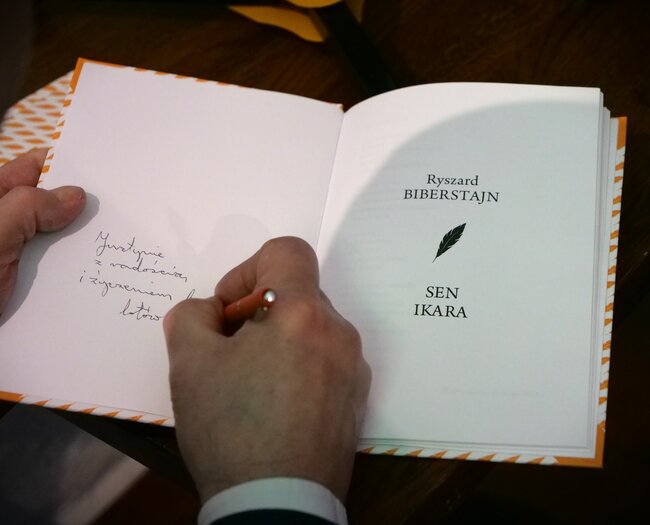 Justynie
z radością
i życzeniem
lotów
Ryszard
BIBERSTAJN
SEN
IKARA